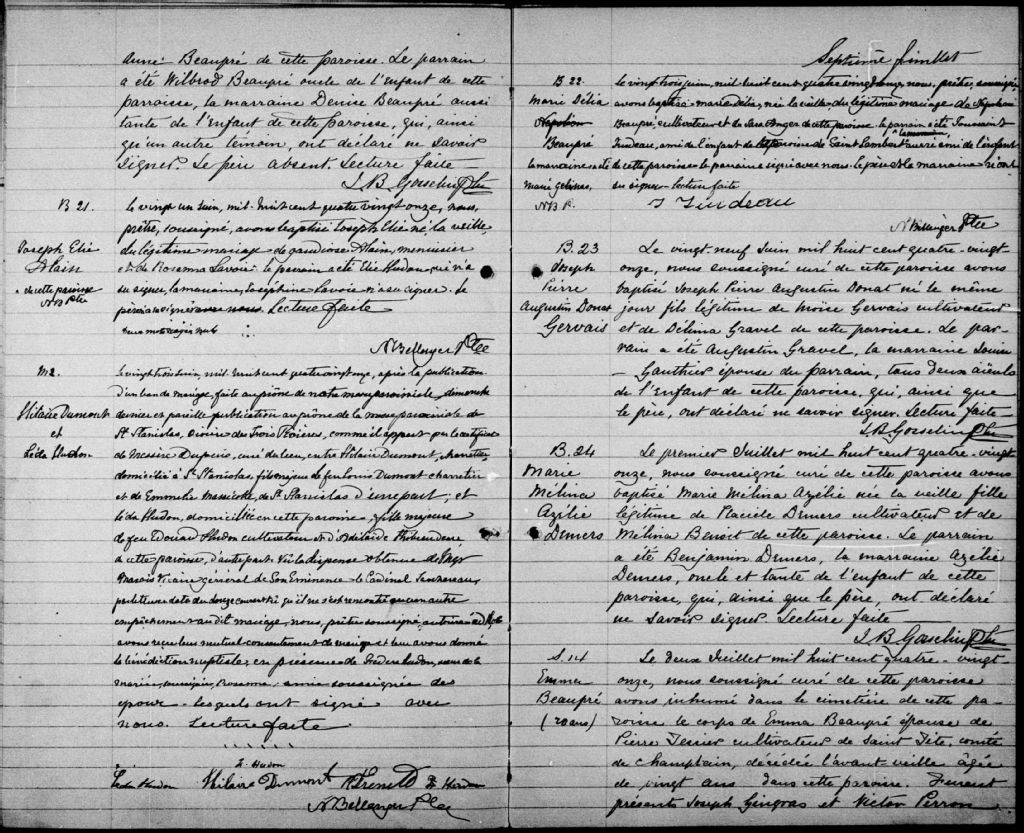 Anne Beaupré de cette paroisse. Le parrain
a été Wilbrod Beaupré oncle de l'Enfant de cette
parroisse, la marraine Denise Beaupré aussi
tante de l'enfant de cette paroisse, qui, ainsi
qu'un autre témoin, ont déclaré ne savoir
signer. Le père absent. Lecture faite
J. B. Gosselin Ptre
B 21.
Joseph Elie
Alain
de cette paroisse
N B Ptre
Le vingt un Juin, mil huit cent quatre vingt onze, nous,
prêtre, soussigné, avons baptisé Joseph Elie né la veille,
du légitime mariage de Alain, menuisier
et de Rosanna Lavoie. Le parrain a été Elie Hudon, qui n'a
su signer, la marraine, Joséphine Lavoie n'a su signer. Le
père a signé avec nous. Lecture faite
N Bellenger Ptre
M 2.
Hilaire Dumont
et
Léda Hudon.
Le vingt trois Juin, mil huit cent quatre vingt onze, après la publication
d'un ban de mariage, faite au prône de notre messe paroissiale, dimanche
dernier et pareille publication au prône de la messe paroissiale de
St Stanislas, diocèse des Trois Rivières, comme il appert par le certificat
de Messire Dupuis, curé du lieu, entre Hilaire Dumont, charretier
domicilié à St Stanislas, fils majeur de feu Louis Dumont charretier
et de Emmelie Massicotte, de St Stanislas d'une part; et
Léda Hudon, domiciliée en cette paroisse, fille majeure
de feu Edouard Hudon cultivateur et d'Adelaide
de cette paroisse, d'autre part. Vu la dispense obtenue de Mgr
Marois Vicaire général de Son Eminence le Cardinal Taschereau,
en date du douze courant vu qu'il ne s'est rencontré aucun autre
empêchement au dit mariage, nous, prêtre soussigné,
avons reçu leur mutuel consentement de mariage et leur avons donné
la bénédiction nuptiale, en présence de Hudon, soeur de la
mariée, soussignée, amie soussignée de
époux. lesquels ont signé avec
nous. Lecture faite
Z. Hudon
Léda Hudon Hilaire Dumont Hudon
N Bellenger Ptre
Septième feuillet
B 22.
Marie Délia
Napoléon
Beaupré
la marraine a été
Marie Gelinas,
N B P.
Le vingt trois juin, mil huit cent quatre vingt onze, nous, prêtre, soussigné,
avons baptisé marie délia, née la veille du légitime mariage de Napoléon
Beaupré, cultivateur et de de cette paroisse le parrain a été Toussaint
Trudeau, ami de l'enfant de la paroisse de Saint Lambert aussi ami de l'enfant
de cette paroisse. le parrain a signé avec nous. le père et la marraine n'ont
su signer. lecture faite
T Trudeau
N Bellenger Ptre
B. 23
Joseph
Pierre
Augustin Donat
Gervais
Le vingt neuf Juin mil huit cent quatre-vingt
onze, nous soussigné curé de cette paroisse avons
baptisé Joseph Pierre Augustin Donat né le même
jour fils légitime de Moïse Gervais cultivateur
et de Délima Gravel de cette paroisse. Le par-
rain a été Augustin Gravel, la marraine Louise
Gauthier épouse du parrain, tous deux aïeuls
de l'Enfant de cette paroisse, qui, ainsi que
le père, ont déclaré ne savoir signer. Lecture faite
J. B. Gosselin Ptre
B. 24
Marie
Mélina
Azélie
Demers
Le premier Juillet mil huit cent quatre-vingt
onze, nous soussigné curé de cette paroisse avons
baptisé Marie Mélina Azélie née la veille fille
légitime de Placide Demers cultivateur et de
Mélina Benoit de cette paroisse. Le parrain
a été Benjamin Demers, la marraine Azélie
Demers, oncle et tante de l'enfant de cette
paroisse, qui, ainsi que le père, ont déclaré
ne savoir signer Lecture faite
J. B. Gosselin Ptre
S. 14
Emma
Beaupré
(20 ans)
Le deux Juillet mil huit cent quatre-vingt
onze, nous soussigné curé de cette paroisse
avons inhumé dans le cimetière de cette pa-
roisse le corps de Emma Beaupré épouse de
Pierre Tessier cultivateur de Saint Tite, comté
de Champlain, décédée l'avant veille âgée
de vingt ans dans cette paroisse. Furent
présents Joseph Gingras et Victor Perron